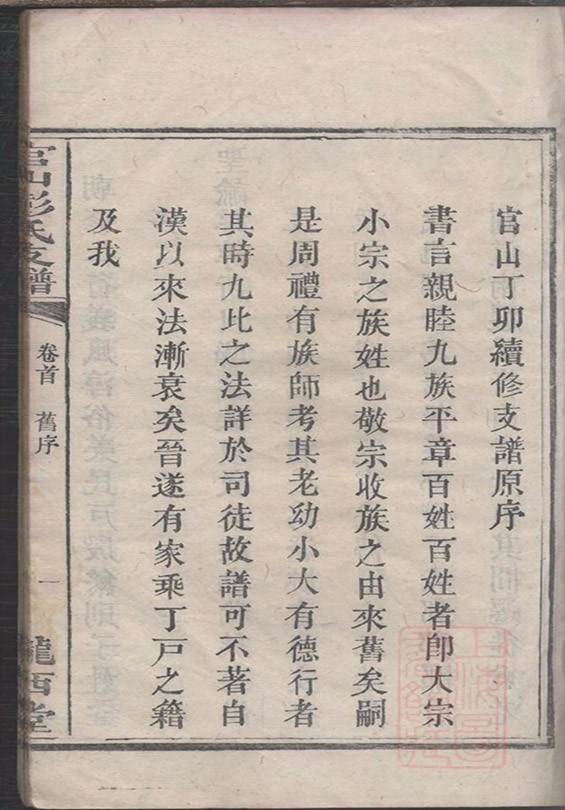 官山丁卯續修支譜原序
書言親睦九族平章百姓百姓者卽大宗
小宗之族姓也敬宗收族之由來舊矣嗣
是周禮有族師考其老幼小大有德行者
其時九比之法詳於司徒故譜可不著自
漢以來法漸衰矣晉遂有家乘丁戸之籍
及我
官山彭氏支譜
卷首 舊序
一
隴西堂